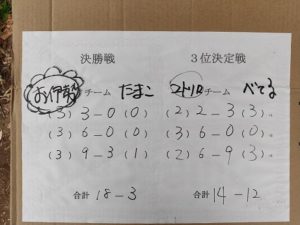 決勝戦
お伊勢チーム たまこ
(3) 3-0 (0)
(3) 6-0 (0)
(3) 9-3 (1)
合計 18-3
3位決定戦
チーム べてる
(2) 2-3 (3)。
(3) 6-0 (0)。
(2) 6-9 (3)。
合計 14-12